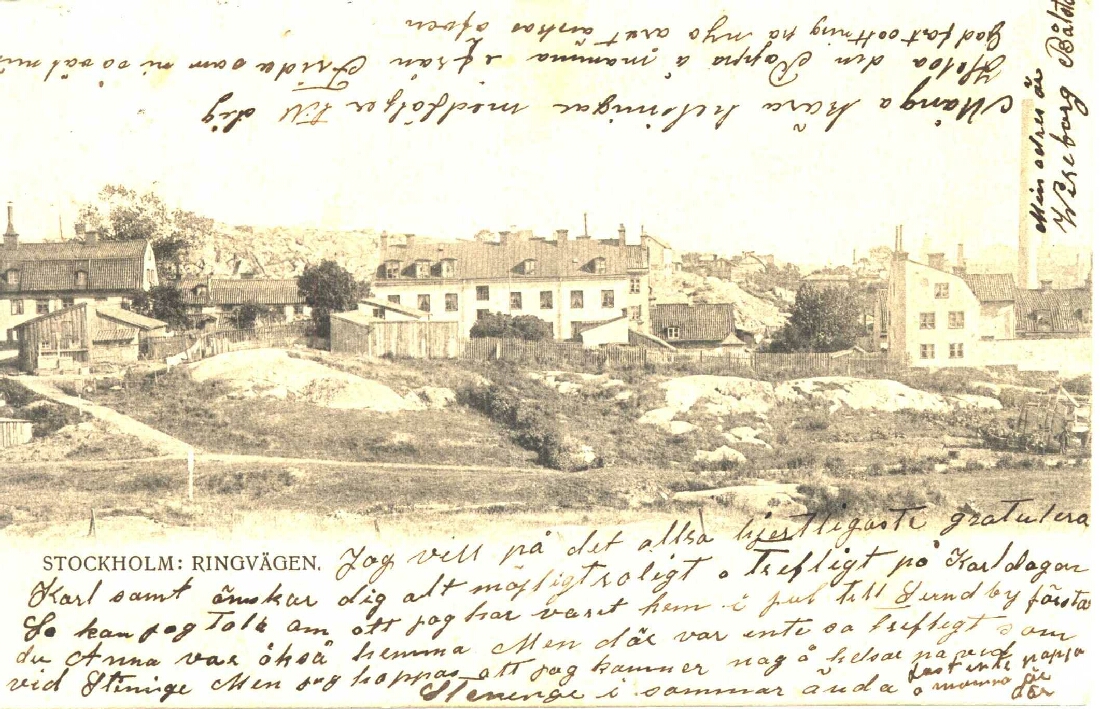 STOCKHOLM: RINGVÄGEN.
Jag vill på det allra hjertligaste gratulera
Karl samt önskar dig alt möjligt roligt o trefligt på Karldagen
Så kan jag tala om att jag har varit hem i jul till Lundby första
du Anna var åkså hemma Men där var inte så trefligt som
vid Steninge Men jag hoppas att jag kommer nog å helsar på vid
Steninge i sommar ända fast inte pappa
o mamma är
där
Många kära helsningar medföljer till dig
Helsa din Pappa å mamma ifrån Frida som ni så väl
God fortsettning på nya aret önskas äfven
Min adres är
Viseborg Bålsta